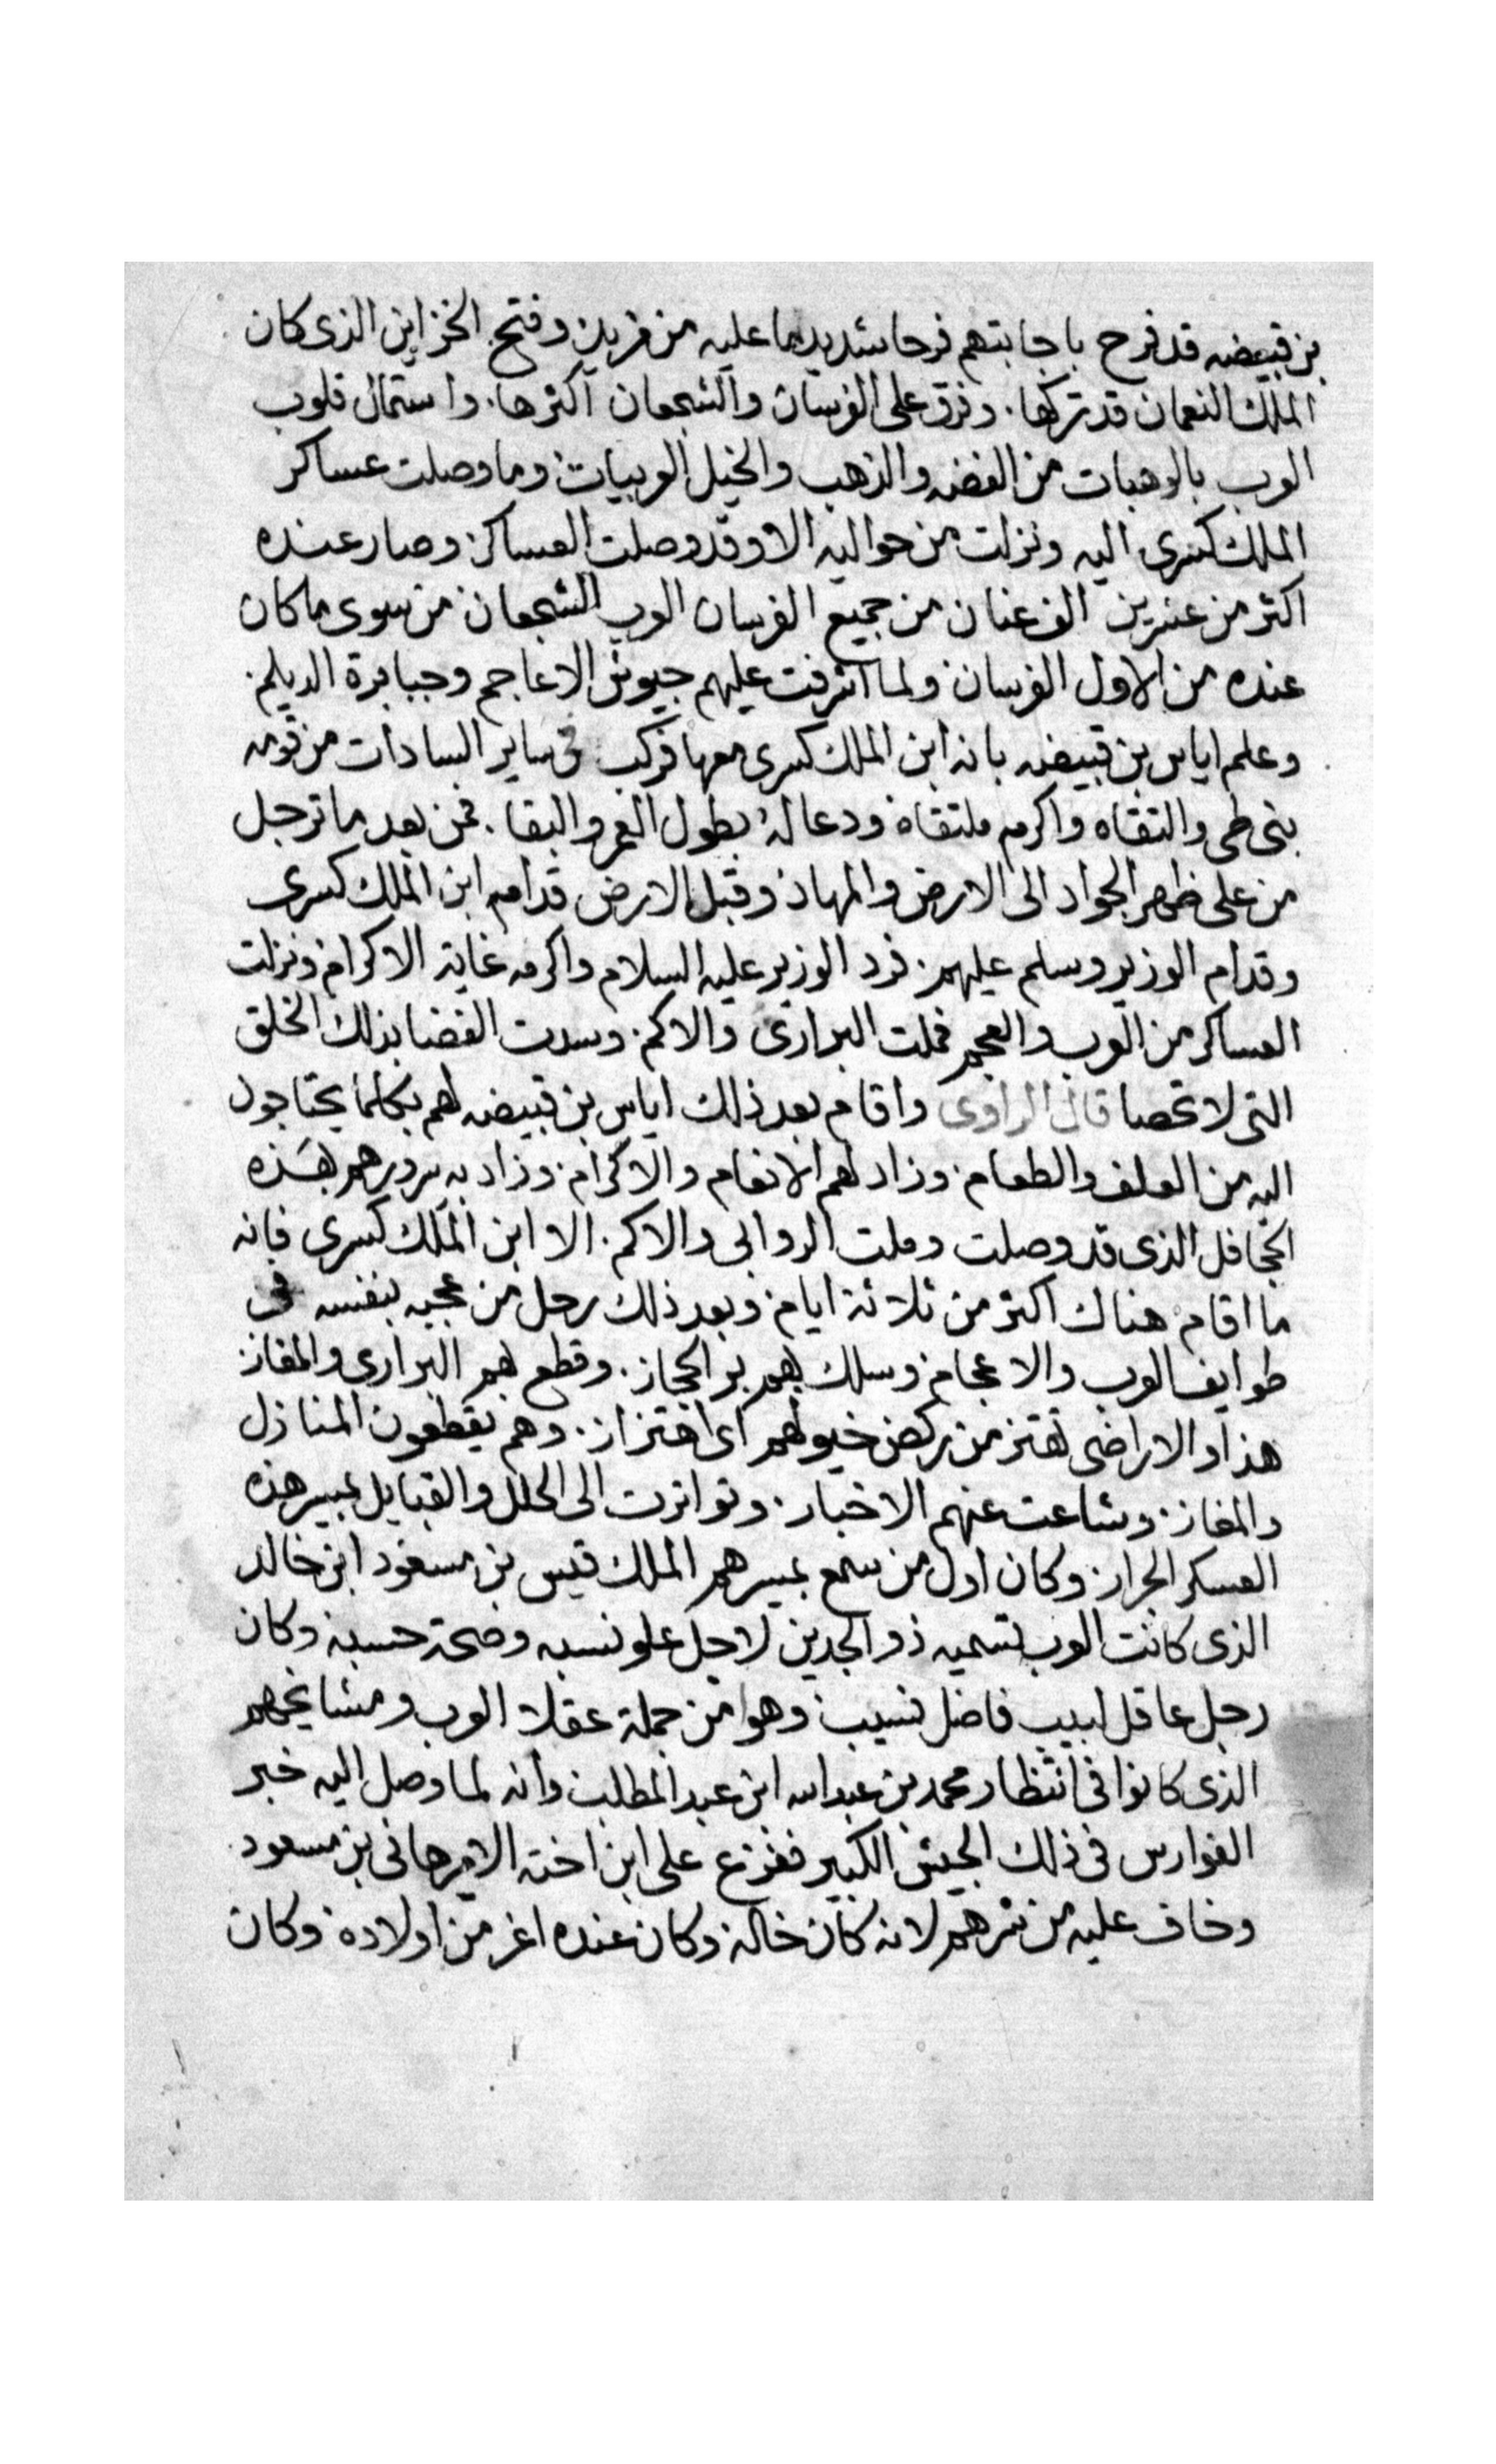 بن قبيضه قد فرح باجابتهم فرحا شديد ما عليه من مزيد وفتح الخزاين الذى كان
الملك النعمان قد تركها. وفرق على الفرسان والشجعان اكثرها. واستمال قلوب
العرب بالوهبات من الفضه والذهب والخيل العربيات وما وصلت عساكر
الملك كسرى اليه ونزلت من حواليه الا وقد وصلت العساكر وصار عنده
اكثر من عشرين الف عنان من جميع الفرسان العرب الشجعان من سوى ما كان
عنده من الاول الفرسان ولما اشرفت عليهم جيوش الاعاجم وجبابرة الديلم.
وعلم اياس بن قبيضه بانه ابن الملك كسرى معها فركب فى ساير السادات من قومه
بنى طى والتقاه واكرم ملتقاه ودعا له بطول العمر والبقا. فمن بعد ما ترجل
من على ظهر الجواد الى الارض والمهاد وقبل الارض قدام ابن الملك كسرى
وقدام الوزير وسلم عليهم. فرد الوزير عليه السلام واكرمه غاية الاكرام ونزلت
العساكر من العرب والعجم فملت البرارى والاكم. وسدت الفضا بذلك الخلق
التى لا تحصا قال الراوى واقام بعد ذلك اياس بن قبيضه لهم بكلما يحتاجون
اليه من العلف والطعام. وزاد لهم الانعام والاكرام. وزاد به سرورهم بهذه
الجحافل الذى قد وصلت وملت الروابى والاكم. الا ابن الملك كسرى فانه
ما اقام هناك اكثر من ثلاثة ايام. وبعد ذلك رحل من عجبه بنفسه فى
طوايف العرب والاعجام وسلك بهم بر الحجاز. وقطع بهم البرارى والمفاز
هذا والاراضى تهتز من ركض خيولهم اى اهتزاز. وهم يقطعون المنازل
والمفاز. وشاعت عنهم الاخبار. وتواترت الى الحلل والقبايل بمسير هذه
العسكر الجرار. وكان اول من سمع بمسيرهم الملك قيس بن مسعود ابن خالد
الذى كانت العرب تسميه ذو الجدين لاجل علو نسبه وصحة حسبه وكان
رجل عاقل لبيب فاضل نسيب وهوا من جملة عقلا العرب ومشايخهم
الذى كانوا فى انتظار محمد بن عبد الله ابن عبد المطلب وانه لما وصل اليه خبر
الفوارس فى ذلك الجيش الكبير ففزع على ابن اخته الامير هانى بن مسعود
وخاف عليه من شرهم لانه كان خاله وكان عنده اعز من اولاده وكان